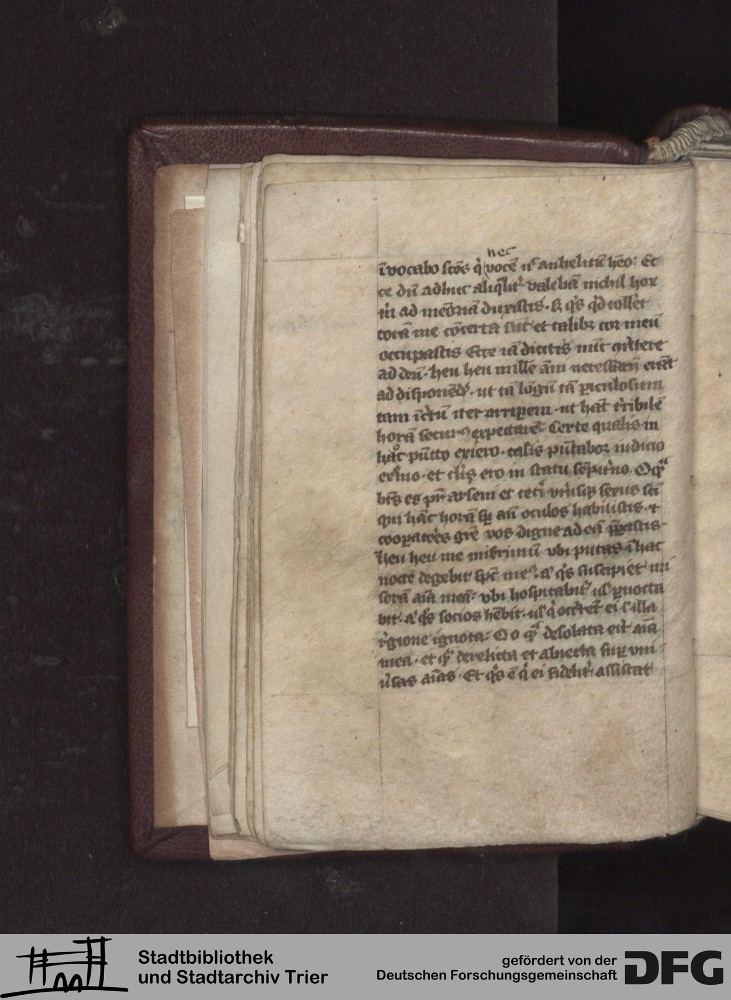 nec
īvocabo scōs q̄ vocē ul' anhelitū hēo: Et
ce dū adhuc aliq̄lit' valebā nichil hor
ad meōriā duxistis. q̄s q̄d tollet
totā me et talibꝫ cor meū
occupastis Ecce iā dicitis
ad deū. heu heu mille āni necessarij eēnt
ad disponēdū. ut tā lōgū tā ꝑiculosum
tam iter arriꝑem. ut hāc t'ribilē
horā secur⁹ expectare. Certe qualis in
hāc pūcto exiero. talis pūtaboꝛ iudicio
et'no. et ero in statu sēpit'no. O q̄
bt̄s es pr̄ arseni et cet'i serus
qui hāc horā sꝑ an̄ oculos habuistis. et
cooꝑatōes vos digne ad eā
heu heu me mis'rimū vbi putas ī hac
nocte degebit spc̄ me⁹. q̄s suscipiet mi
serā aīā meā. vbi hospitabit' ul' ꝑnocta
bit. q̄s socios hēbit. ul' q̄ occ'ret ei ī illa
r'gione ignota. O o q̄ desolata erit aīa
mea. et q̄ derelicta et abiecta suꝑ vni
u'sas aīas. Et q̄s ē q̄ ei fidelit' assistat
Stadtbibliothek
und Stadtarchiv Trier
gefördert von der
Deutschen Forschungsgemeinschaft
DFG